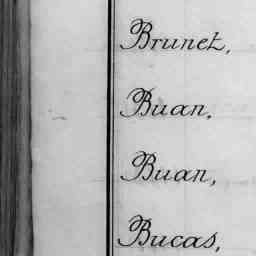 Brunet,
Buan,
Buan,
Bucas,